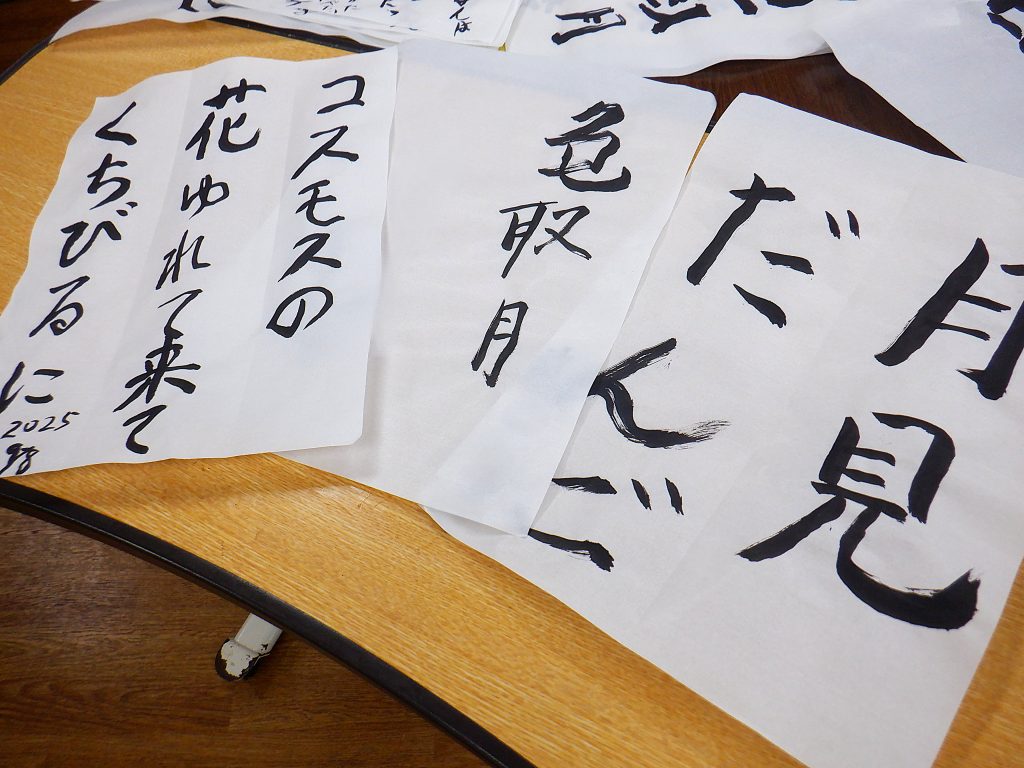 月見
だんご
色取月
コスモスの
花ゆれて来て
くちびるに
2025